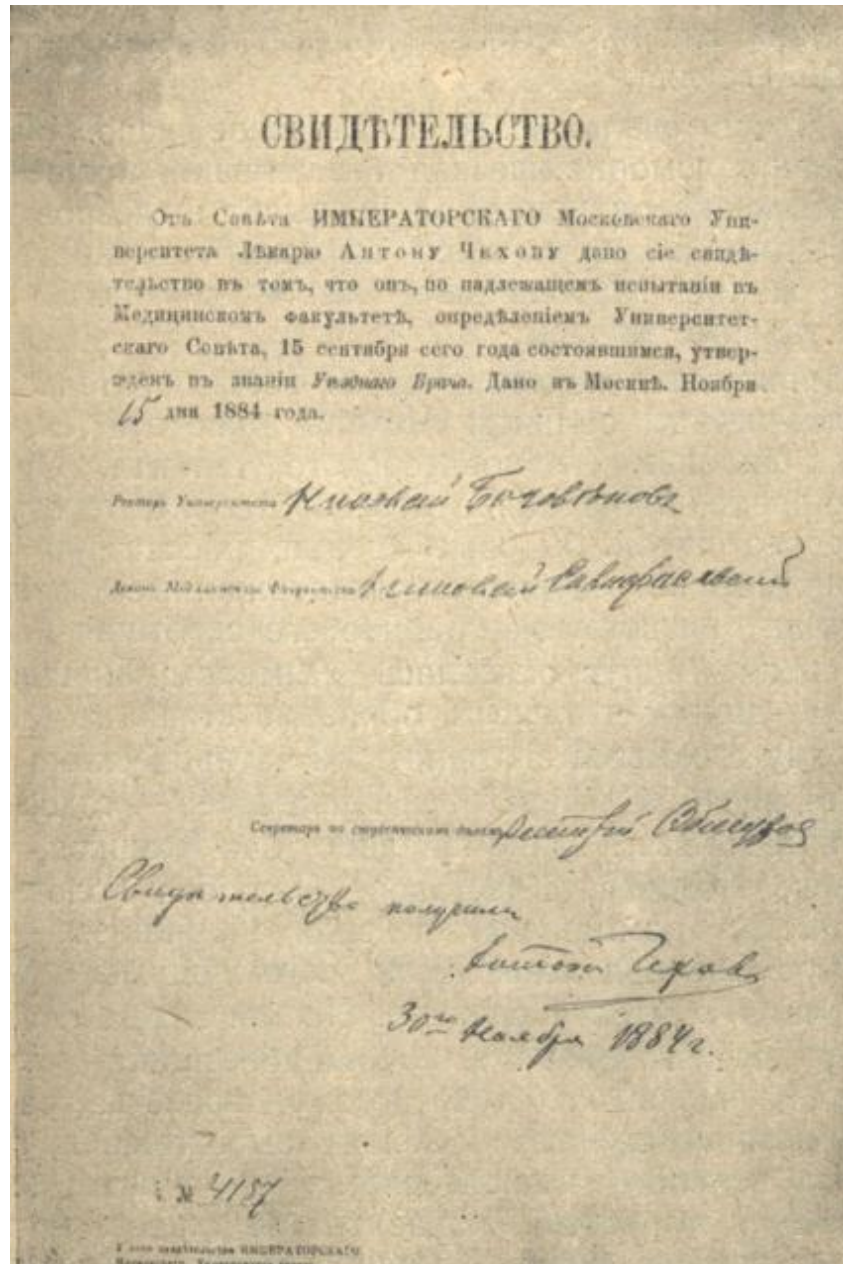 СВИДѢТЕЛЬСТВО.
Отъ Совѣта ИМПЕРАТОРСКАГО Московскаго Уни-
верситета Лѣкарю Антону Чехову дано сіе свидѣ-
тельство въ томъ, что онъ, по надлежащемъ испытаніи въ
Медицинскомъ факультетѣ, опредѣленіемъ Университет-
скаго Совѣта, 15 сентября сего года состоявшимся, утвер-
жденъ въ званіи Уѣзднаго Врача. Дано въ Москвѣ. Ноября
15 дня 1884 года.
Ректоръ Университета Николай Боголѣповъ
Деканъ Медицинскаго Факультета
Секретарь по студенческимъ дѣламъ
Свидѣтельство получилъ
Антонъ Чеховъ
30го Ноября 1884 г.
№ 4157
ИМПЕРАТОРСКАГО